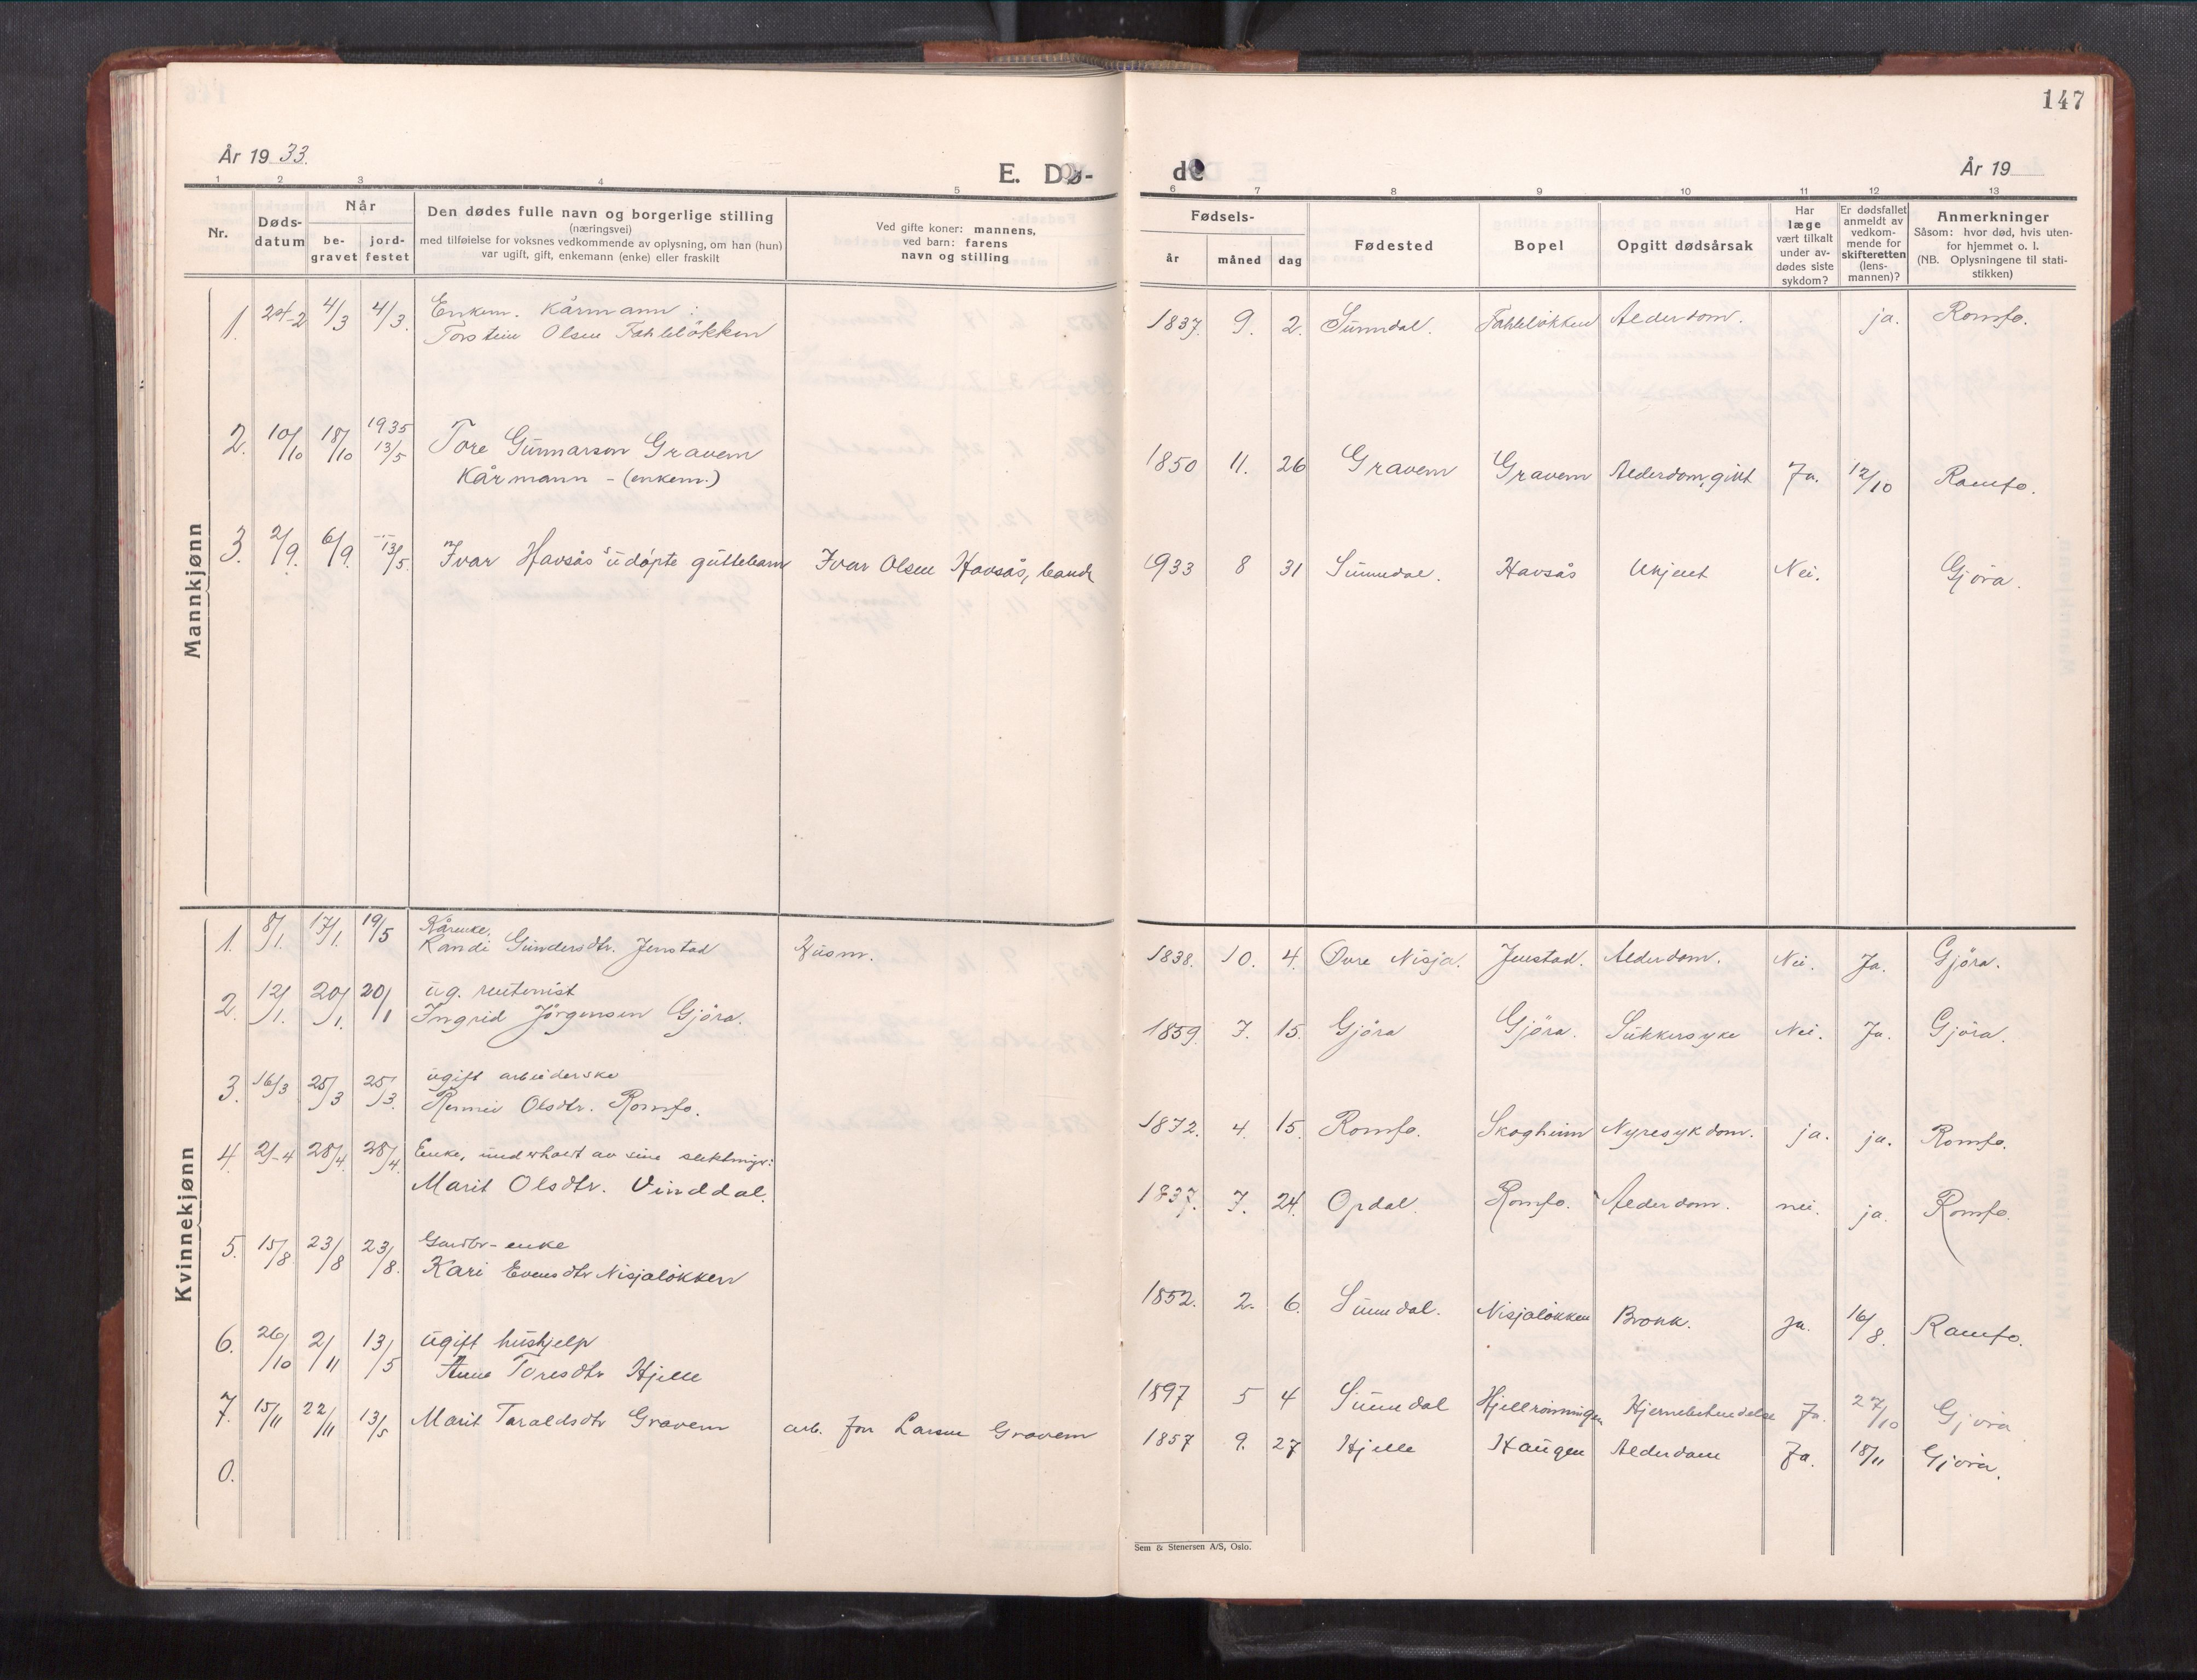 147
År 19 33.
E. Dø-
de
År 19
1 2 3 4 5 6 7 8 9 10 11 12 13
Nr.
Døds-
datum
Når
be-
gravet
jord-
festet
Den dødes fulle navn og borgerlige stilling
(næringsvei)
med tilføielse for voksnes vedkommende av oplysning, om han (hun)
var ugift, gift, enkemann (enke) eller fraskilt
Ved gifte koner: mannens,
ved barn: farens
navn og stilling
Fødsels-
år
måned
dag
Fødested
Bopel
Opgitt dødsårsak
Har
læge
vært tilkalt
under av-
dødes siste
sykdom?
Er dødsfallet
anmeldt av
vedkom-
mende for
skifteretten
(lens-
mannen)?
Anmerkninger
Såsom: hvor død, hvis uten-
for hjemmet o. l.
(NB. Oplysningene til stati-
stikken)
Mannkjønn
Enkem. Kårmann:
1. 24-2 4/3 4/3. Torstein Olsen Fahleløkken 1837. 9. 2. Sunndal. Fahleløkken Alderdom. ja. Romfo.
1935
2. 10/10 18/10 13/5 Tore Gunnarson Gravem 1850 11. 26 Gravem Gravem Alderdom, gikt Ja. 12/10 Romfo.
Kårmann - (enkem.)
3. 2/9. 6/9. 13/5. Ivar Havsås's udøpte guttebarn Ivar Olsen Havsås, 933 8 31 Sunndal. Havsås Ukjent Nei. Gjøra.
Kvinnekjønn
Kårenke.
1. 8/1. 17/1. 19/5 Randi Gundersdtr. Jenstad Husm. 1838. 10. 4. Øvre Nisja. Jenstad. Alderdom. Nei. Ja. Gjöra.
ug. rentenist
2. 12/1. 20/1. 20/1 Ingrid Jörgensen Gjöra. 1859. 7. 15. Gjöra Gjöra. Sukkersyke Nei. Ja. Gjöra.
ugift arbeiderske
3. 16/3 25/3 25/3. Olsdtr. Romfo. 1872. 4. 15. Romfo. Skogheim Nyresykdom. ja. ja. Romfo.
Enke, underholdt av sine slektninger:
4. 21-4 28/4. 28/4. Marit Olsdtr. Vinddal. 1837. 7. 24. Opdal. Romfo. Alderdom. nei. ja. Romfo.
Gardbr-enke
5. 15/8. 23/8 23/8. Kari Evensdtr Nisjaløkken 1852. 2. 6. Sunndal. Nisjaløkken Bronk. Ja. 16/8. Romfo.
ugift hushjelp
6. 26/10 2/11 13/5 Anne Toresdtr Hjelle 1897 5 4 Sunndal Hjellrønningen Hjernebetendelse Ja. 27/10 Gjøra
7. 15/11 22/11 13/5 Marit Taraldsdtr Gravem arb. Jon Larsen Gravem 1857 9. 27 Hjelle Haugen Alderdom Ja. 18/11 Gjøra.
0.
Sem & Stenersen A/S, Oslo.